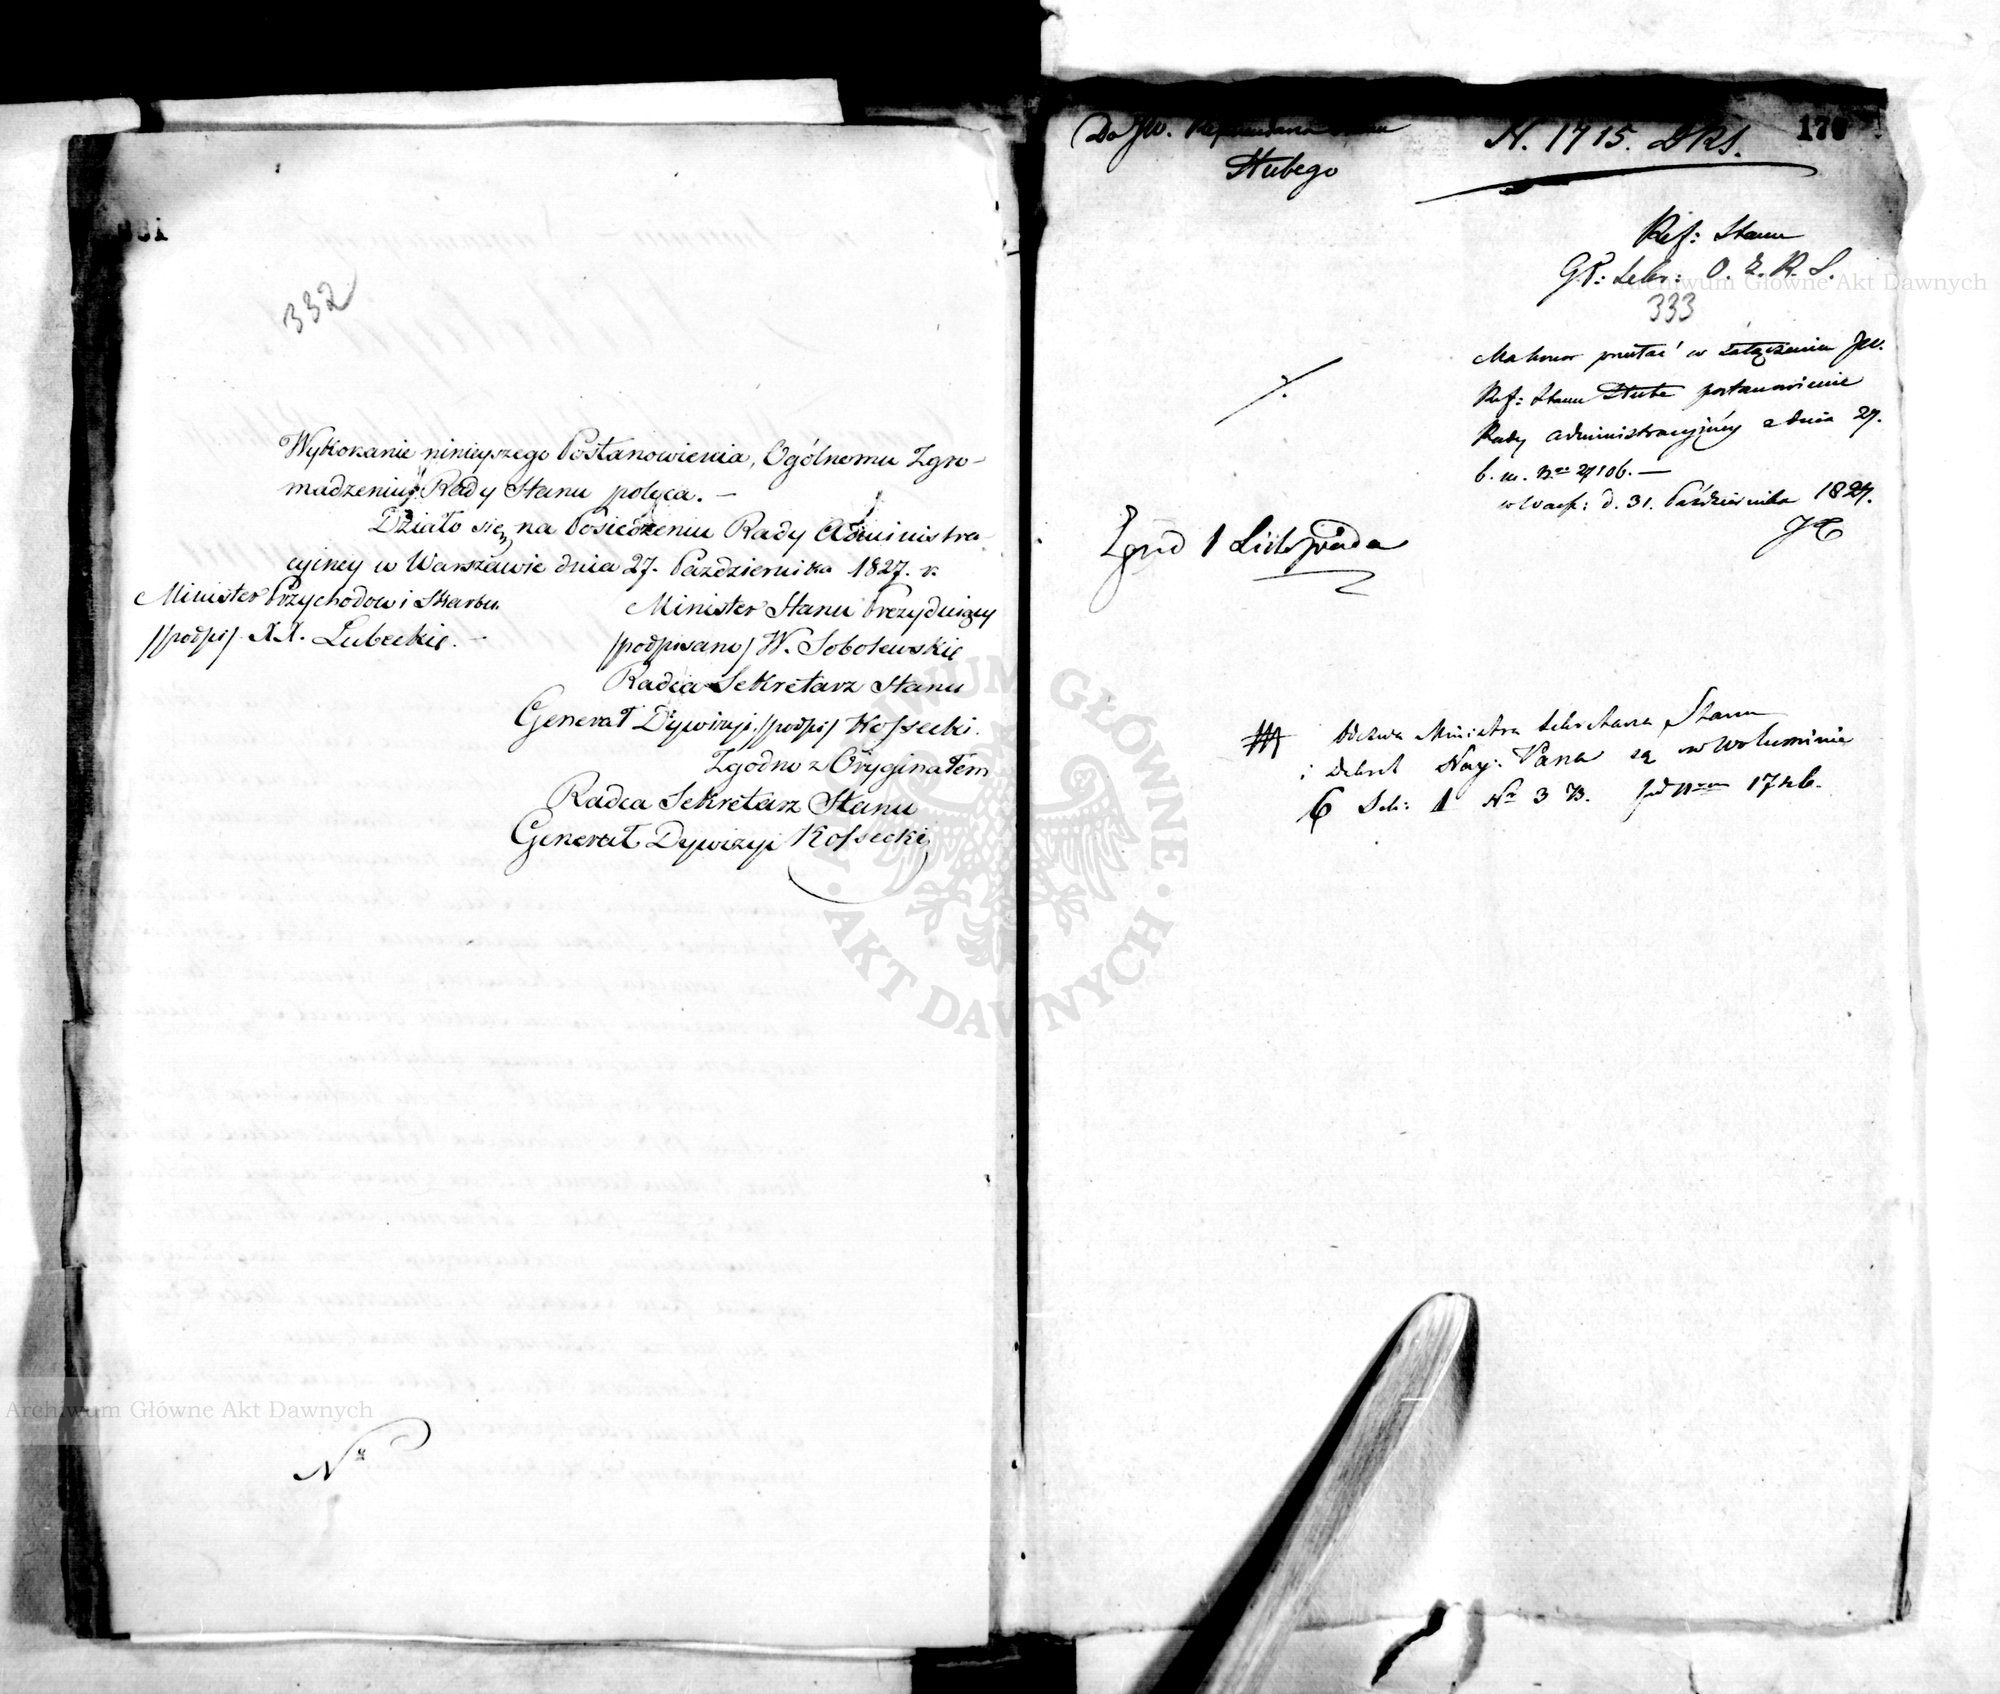 332
Wykonanie ninieyszego Postanowienia, Ogólnemu Zgro-
madzeniu Rady Stanu poleca. —
Działo się na Posiedzeniu Rady Administra-
cyiney w Warszawie dnia 27. Października 1827. r.
Minister Przychodow i Skarbu
/podpis/ X. X. Lubecki. —
Minister Stanu Prezyduiący
/podpisano/ W. Sobolewski
Radca Sekretarz Stanu
Generał Dywizyi /podpis/ Kossecki.
Zgodno z Oryginałem
Radca Sekretarz Stanu
Generał Dywizyi Kossecki
Nr
Do JW. Referendarza Stanu
Hubego
N. 1715. DRS.
170
Ref: Stanu
G.P: Sekr: O. Z. R. S.
333
Ma honor przesłać w załączeniu JW.
Ref: Stanu Hube postanowienie
Rady administracyjnéy z dnia 27.
b. m. Nro 27106. —
w Warsz: d. 31. Października 1827.
1 Listopada
Odezwa Ministra Sekretarza Stanu
i Dekret Nay: Pana są w woluminie
6 1 No 3 B. 17
Archiwum Główne Akt Dawnych
Archiwum Główne Akt Dawnych
ARCHIWUM GŁÓWNE · AKT DAWNYCH ·